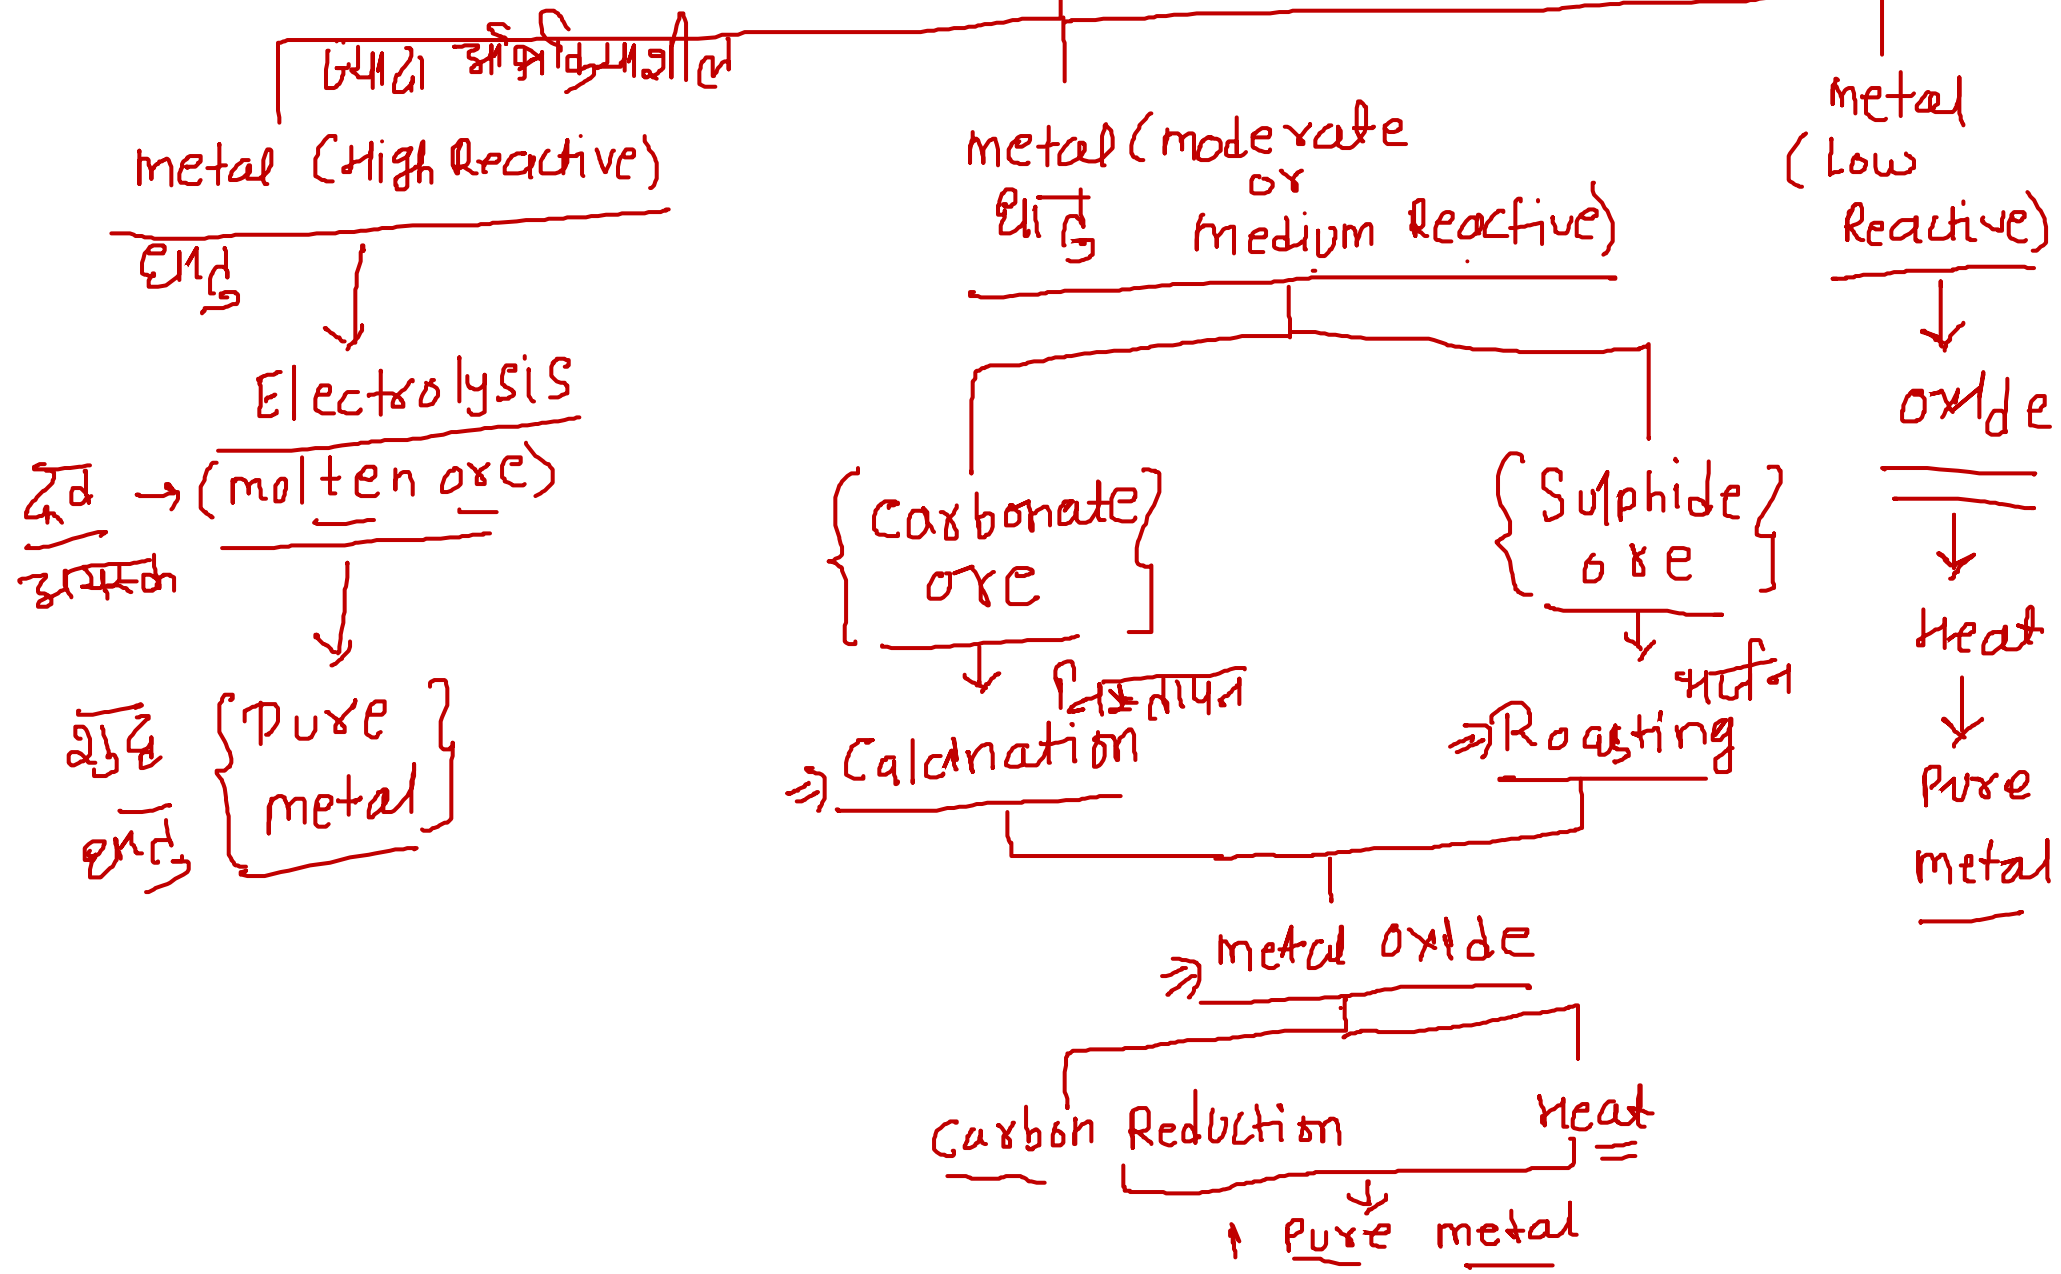 ज्यादा अभिक्रियाशील
metal (High Reactive)
धातु
Electrolysis
द्रव → (molten ore)
अयस्क
शुद्ध
धातु
{Pure
metal}
metal (moderate
or
धातु
medium Reactive)
{Carbonate
ore}
निस्तापन
Calcination
{Sulphide
ore}
भर्जन
Roasting
metal oxide
Carbon Reduction
Heat
Pure metal
metal
(Low
Reactive)
oxide
Heat
Pure
metal